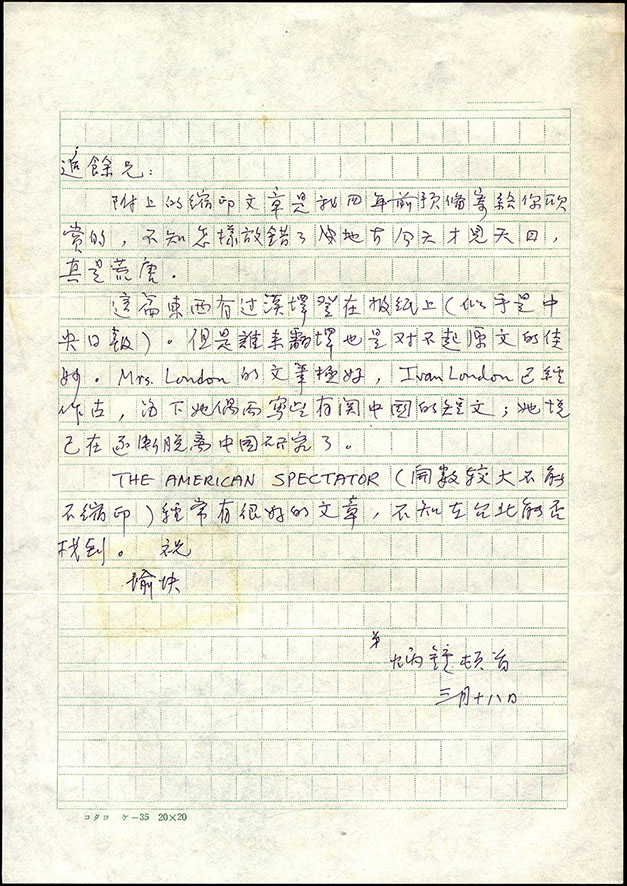 追餘兄：
附上的縮印文章是我四年前預備寄給你欣
賞的，不知怎樣放錯了地方今天才見天日，
真是荒唐。
這篇東西有过漢譯登在报紙上（似乎是中
央日報）。但是誰来翻譯也是对不起原文的佳
妙。Mrs. London 的文筆極好，Ivan London 已經
作古，留下她偶而寫些有関中國的短文；她説
已在逐漸脱离中國研究了。
THE AMERICAN SPECTATOR（開數較大不能
不縮印）經常有很好的文章，不知在台北能否
找到。祝
愉快
弟
炳頓首
三月十八日
コクヨ ケー35 20×20